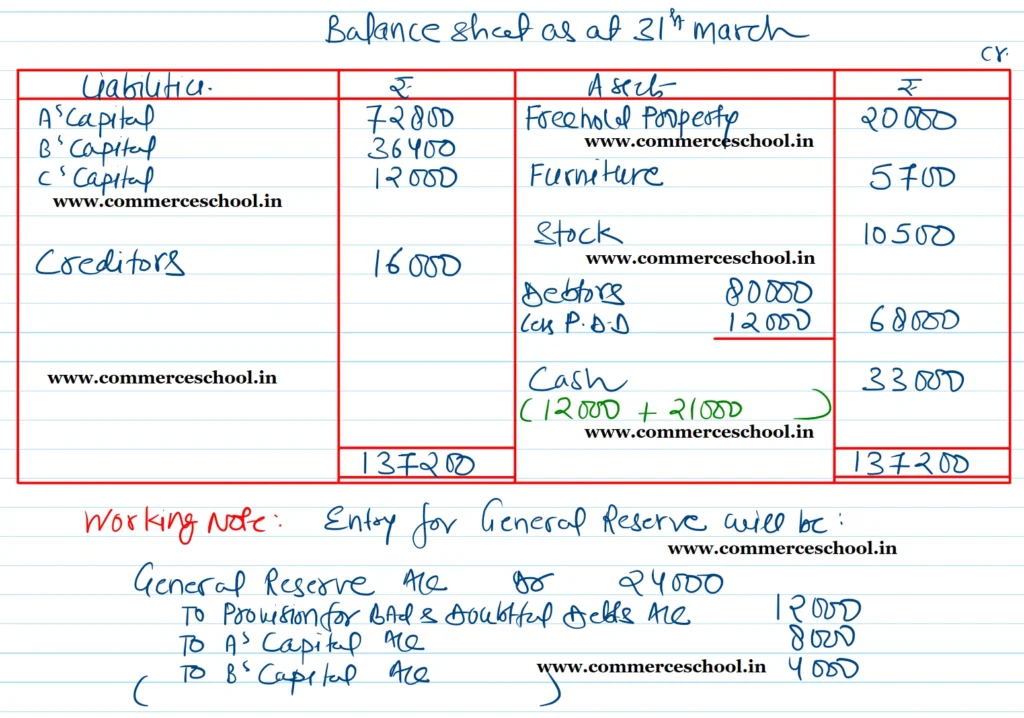 Balance sheet as at 31st march
Cr.
Liabilities. ₹ Assets ₹
A's Capital 72800 Freehold Property 20000
www.commerceschool.in
B's Capital 36400
C's Capital 12000 Furniture 5700
www.commerceschool.in
Stock 10500
www.commerceschool.in
Creditors 16000
Debtors 80000
Less P.D.D 12000 68000
www.commerceschool.in
Cash 33000
(12000 + 21000)
www.commerceschool.in
137200 137200
Working Note: Entry for General Reserve will be:
www.commerceschool.in
General Reserve A/c Dr 24000
To Provision for Bad & Doubtful Debts A/c 12000
To A's Capital A/c 8000
To B's Capital A/c 4000
www.commerceschool.in
( )